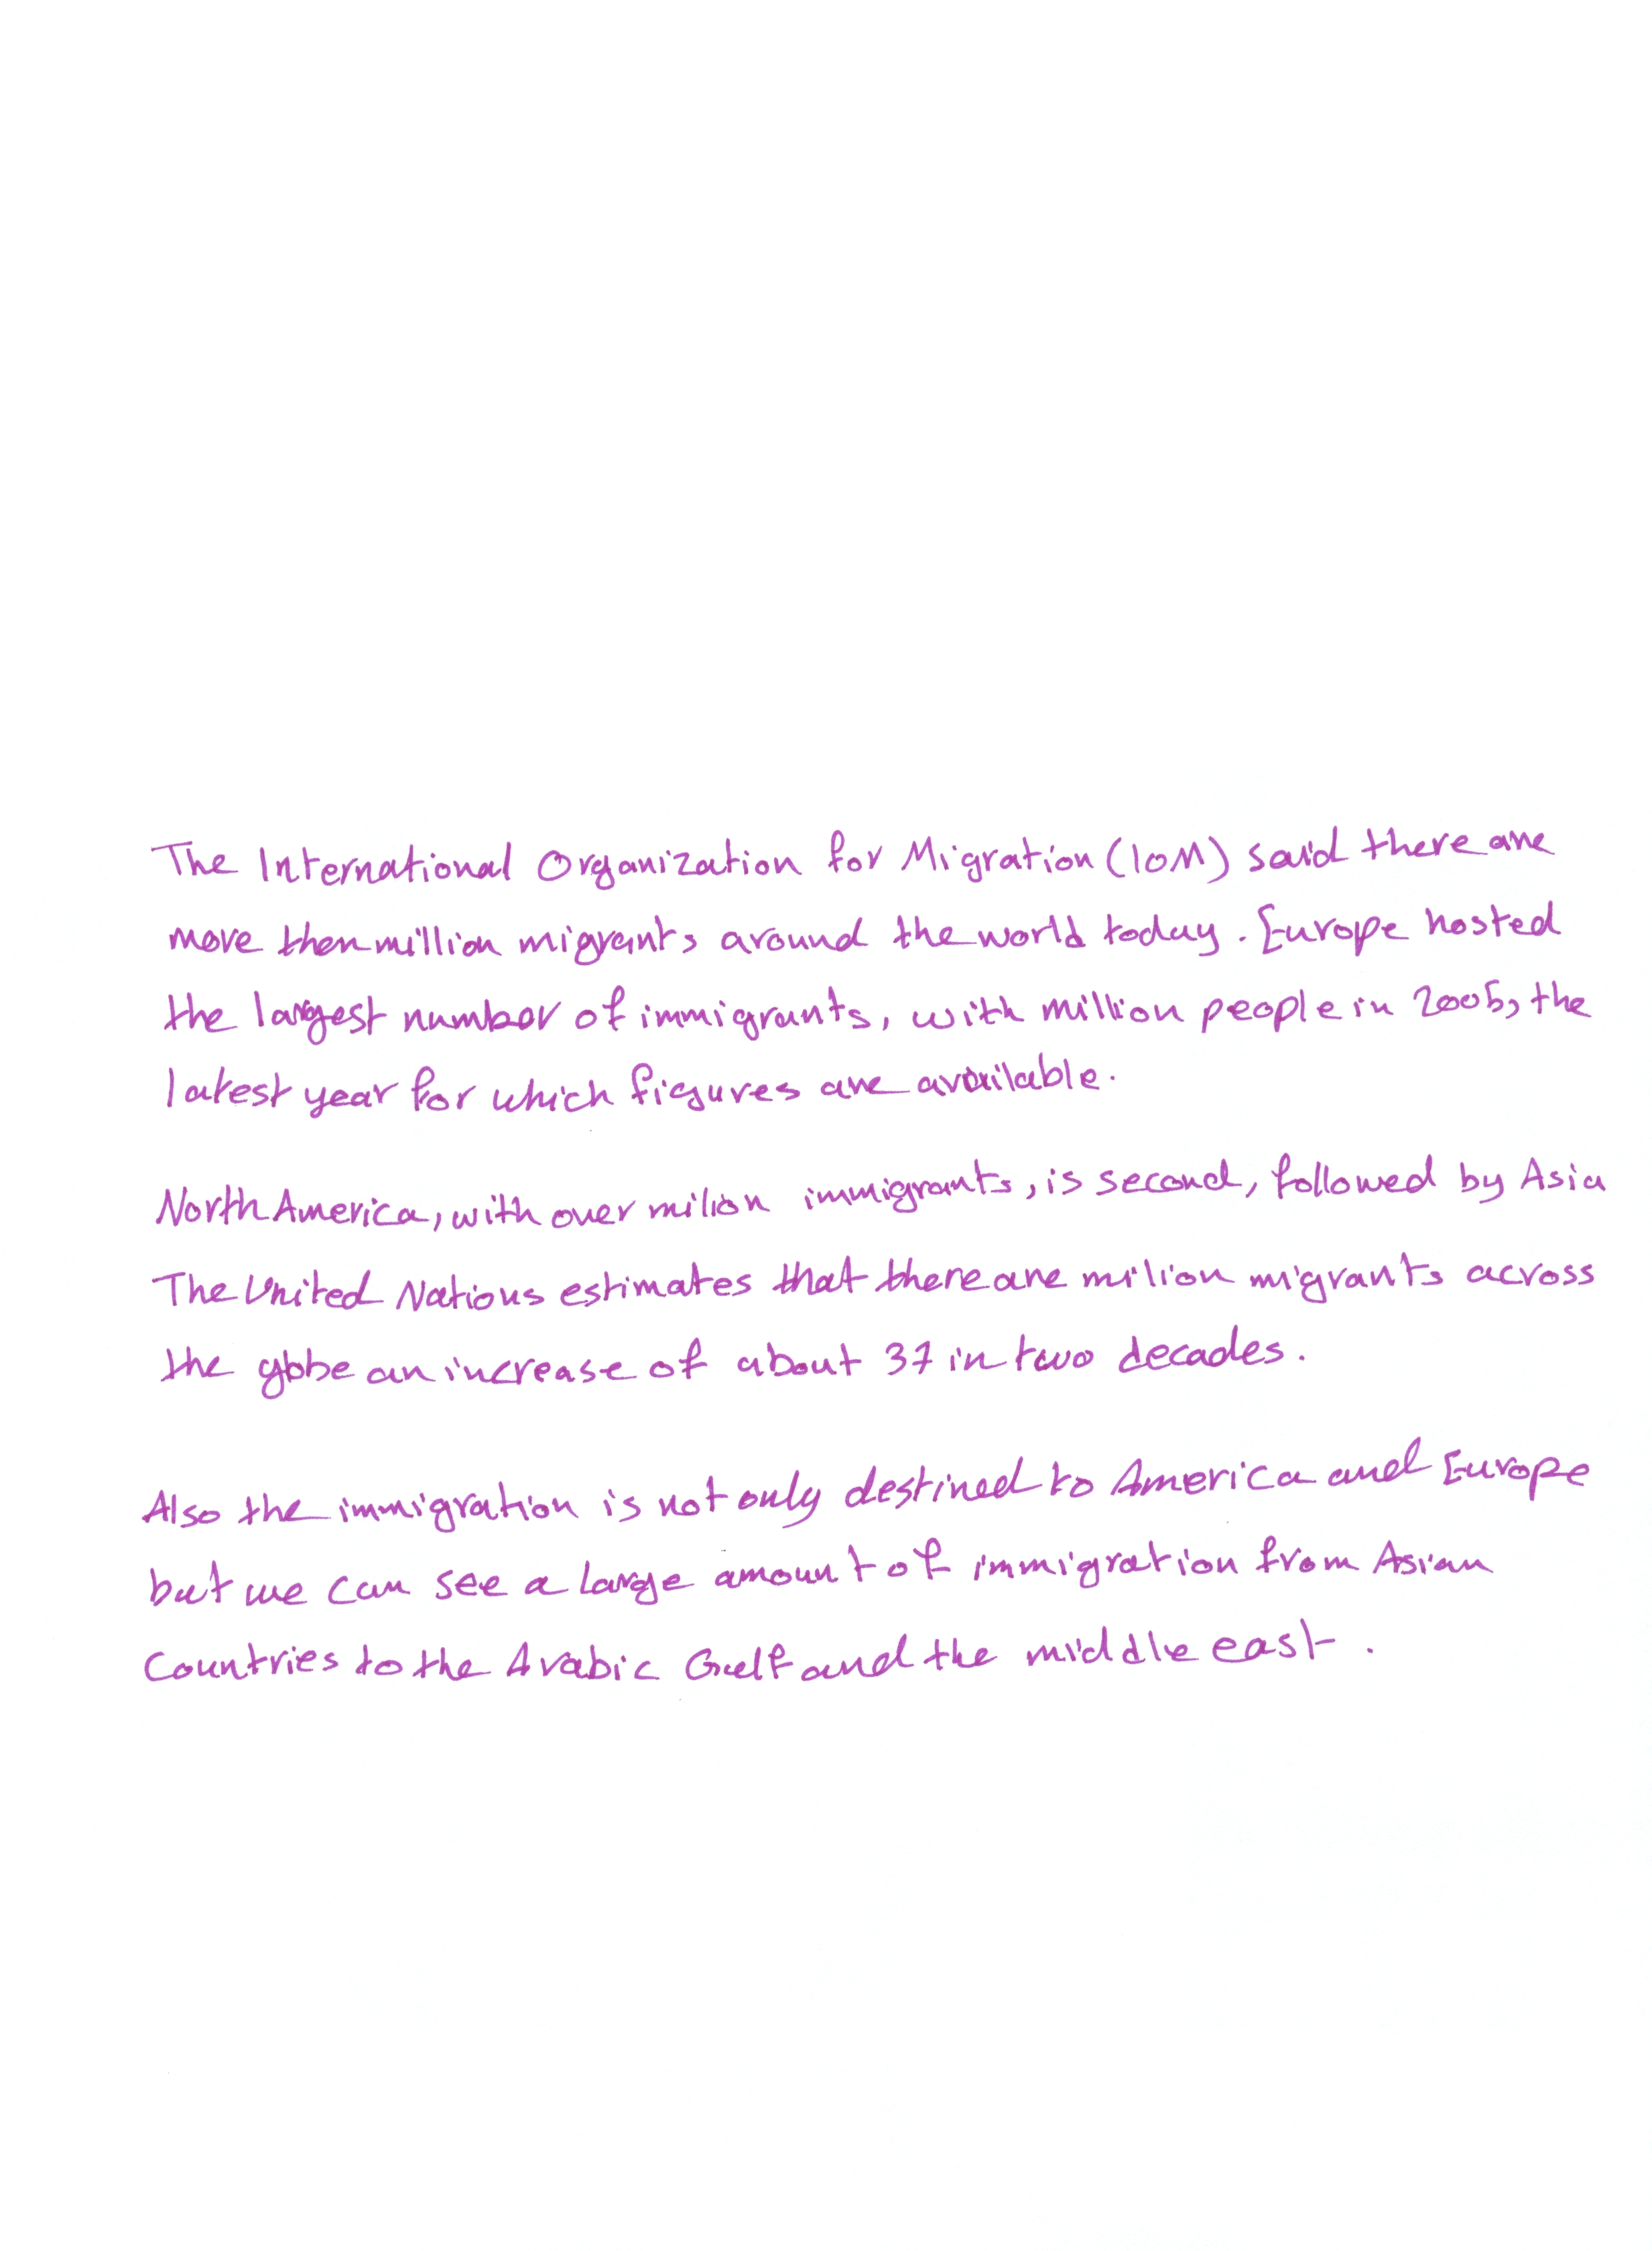 The International Organization for Migration (IOM) said there are
more then million migrants around the world today. Europe hosted
the largest number of immigrants, with million people in 2005, the
latest year for which figures are available.
North America, with over milion immigrants, is second, followed by Asia
The United Nations estimates that there are milion migrants across
the globe an increase of about 37 in two decades.
Also the immigration is not only destined to America and Europe
but we can see a large amount of immigration from Asian
Countries to the Arabic Gulf and the middle east.